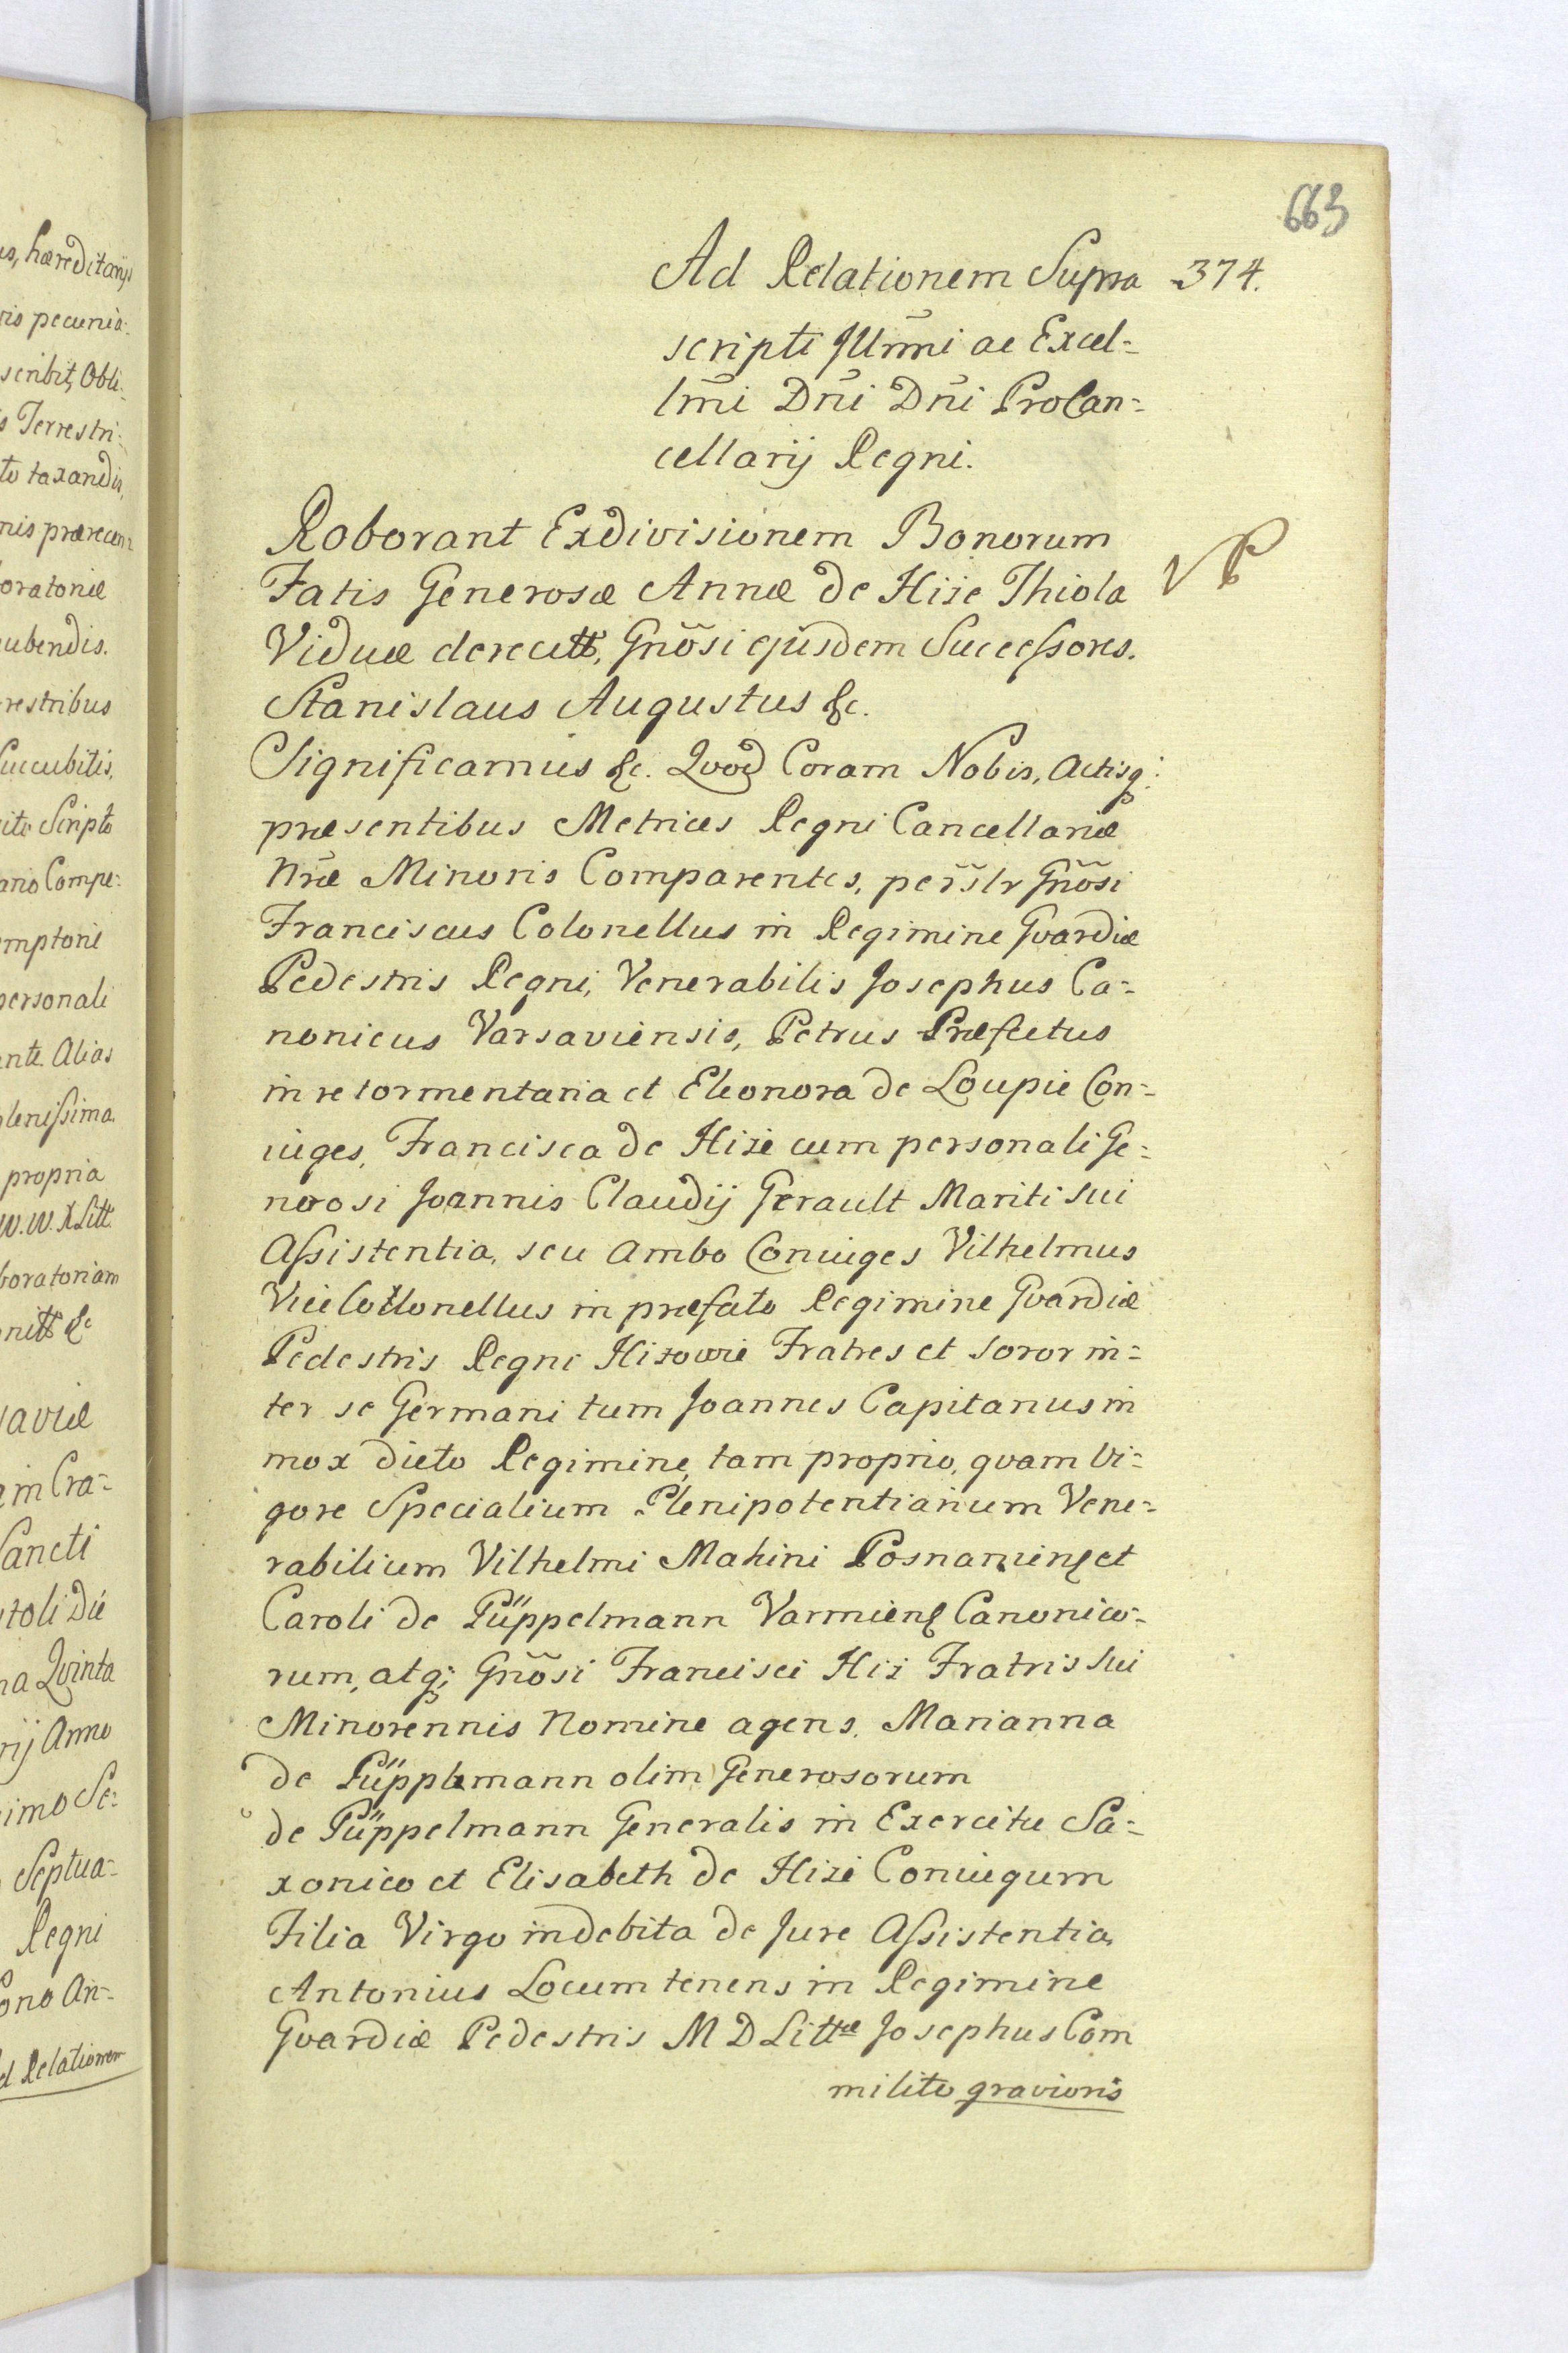 663
Ad Relationem Supra 374.
scripti Illmi ac Excel=
lmi Dni Dni ProCan=
cellarij Regni.
Roborant Exdivisionem Bonorum
Fatis Generosæ Annæ de Hize Thiola
Viduæ derecutt, Gnosi ejusdem Successores.
Stanislaus Augustus &c.
Significamus &c. Quod Coram Nobis, Actisq:
præsentibus Metrices Regni Cancellariæ
Nræ Minoris Comparentes, persslr Gnosi
Franciscus Colonellus in Regimine Gvardiæ
Pedestris Regni, Venerabilis Josephus Ca=
nonicus Varsaviensis, Petrus Præfectus
in re tormentaria et Eleonora de Loupie Con=
iuges, Francisca de Hize cum personali Ge=
nerosi Joannis Claudij Gerault Mariti sui
Assistentia, seu ambo Coniuges Vilhelmus
ViceCollonellus in præfato Regimine Gvardiæ
Pedestris Regni Hizowie Fratres et soror in=
ter se Germani tum Joannes Capitanus in
mox dicto Regimine, tam proprio, qvam Vi=
gore Specialium Plenipotentiarium Vene=
rabilium Vilhelmi Mahini Posnaniens et
Caroli de Püppelmann Varmiens Canonico=
rum, atq; Gnosi Francisci Hiz Fratris sui
Minorennis Nomine agens, Marianna
de Püpplemann olim Generosorum
de Püppelmann Generalis in Exercitu Sa=
xonico et Elisabeth de Hize Coniugum
Filia Virgo in debita de Jure Assistentia,
Antonius Locum tenens in Regimine
Gvardiæ Pedestris M D Littæ Josephus Com
milito gravioris
us, hæreditarijs
ris pecunia:
scribit, Obli:
s Terrestri:
to taxandis,
nis præecen=
oratoriæ
cubendis.
restribus
Succubitis,
ite Scripto
ario Compe:
mptoni
personali
ante. Alias
plenissima.
propria
W. W. X. Litt.
boratoriam
nitt &c
saviæ
m Cra=
Sancti
stoli Die
na Qvinta
rij Anno
imo Se:
Septua=
Regni
ono An=
d Relationem